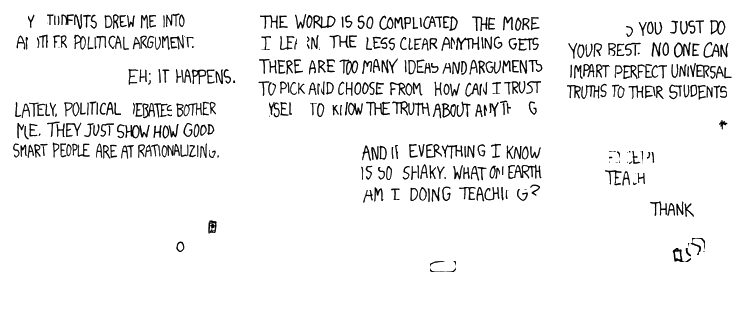 STUDENTS DREW ME INTO
POLITICAL ARGUMENT.
EH; IT HAPPENS.
LATELY, POLITICAL DEBATES BOTHER
ME. THEY JUST SHOW HOW GOOD
SMART PEOPLE ARE AT RATIONALIZING.
THE WORLD IS SO COMPLICATED THE MORE
I LEARN, THE LESS CLEAR ANYTHING GETS
THERE ARE TOO MANY IDEAS AND ARGUMENTS
TO PICK AND CHOOSE FROM HOW CAN I TRUST
TO KNOW THE TRUTH ABOUT ANYTHING
AND IF EVERYTHING I KNOW
IS SO SHAKY. WHAT ON EARTH
AM I DOING TEACHING?
YOU JUST DO
YOUR BEST. NO ONE CAN
IMPART PERFECT UNIVERSAL
TRUTHS TO THEIR STUDENTS
THANK